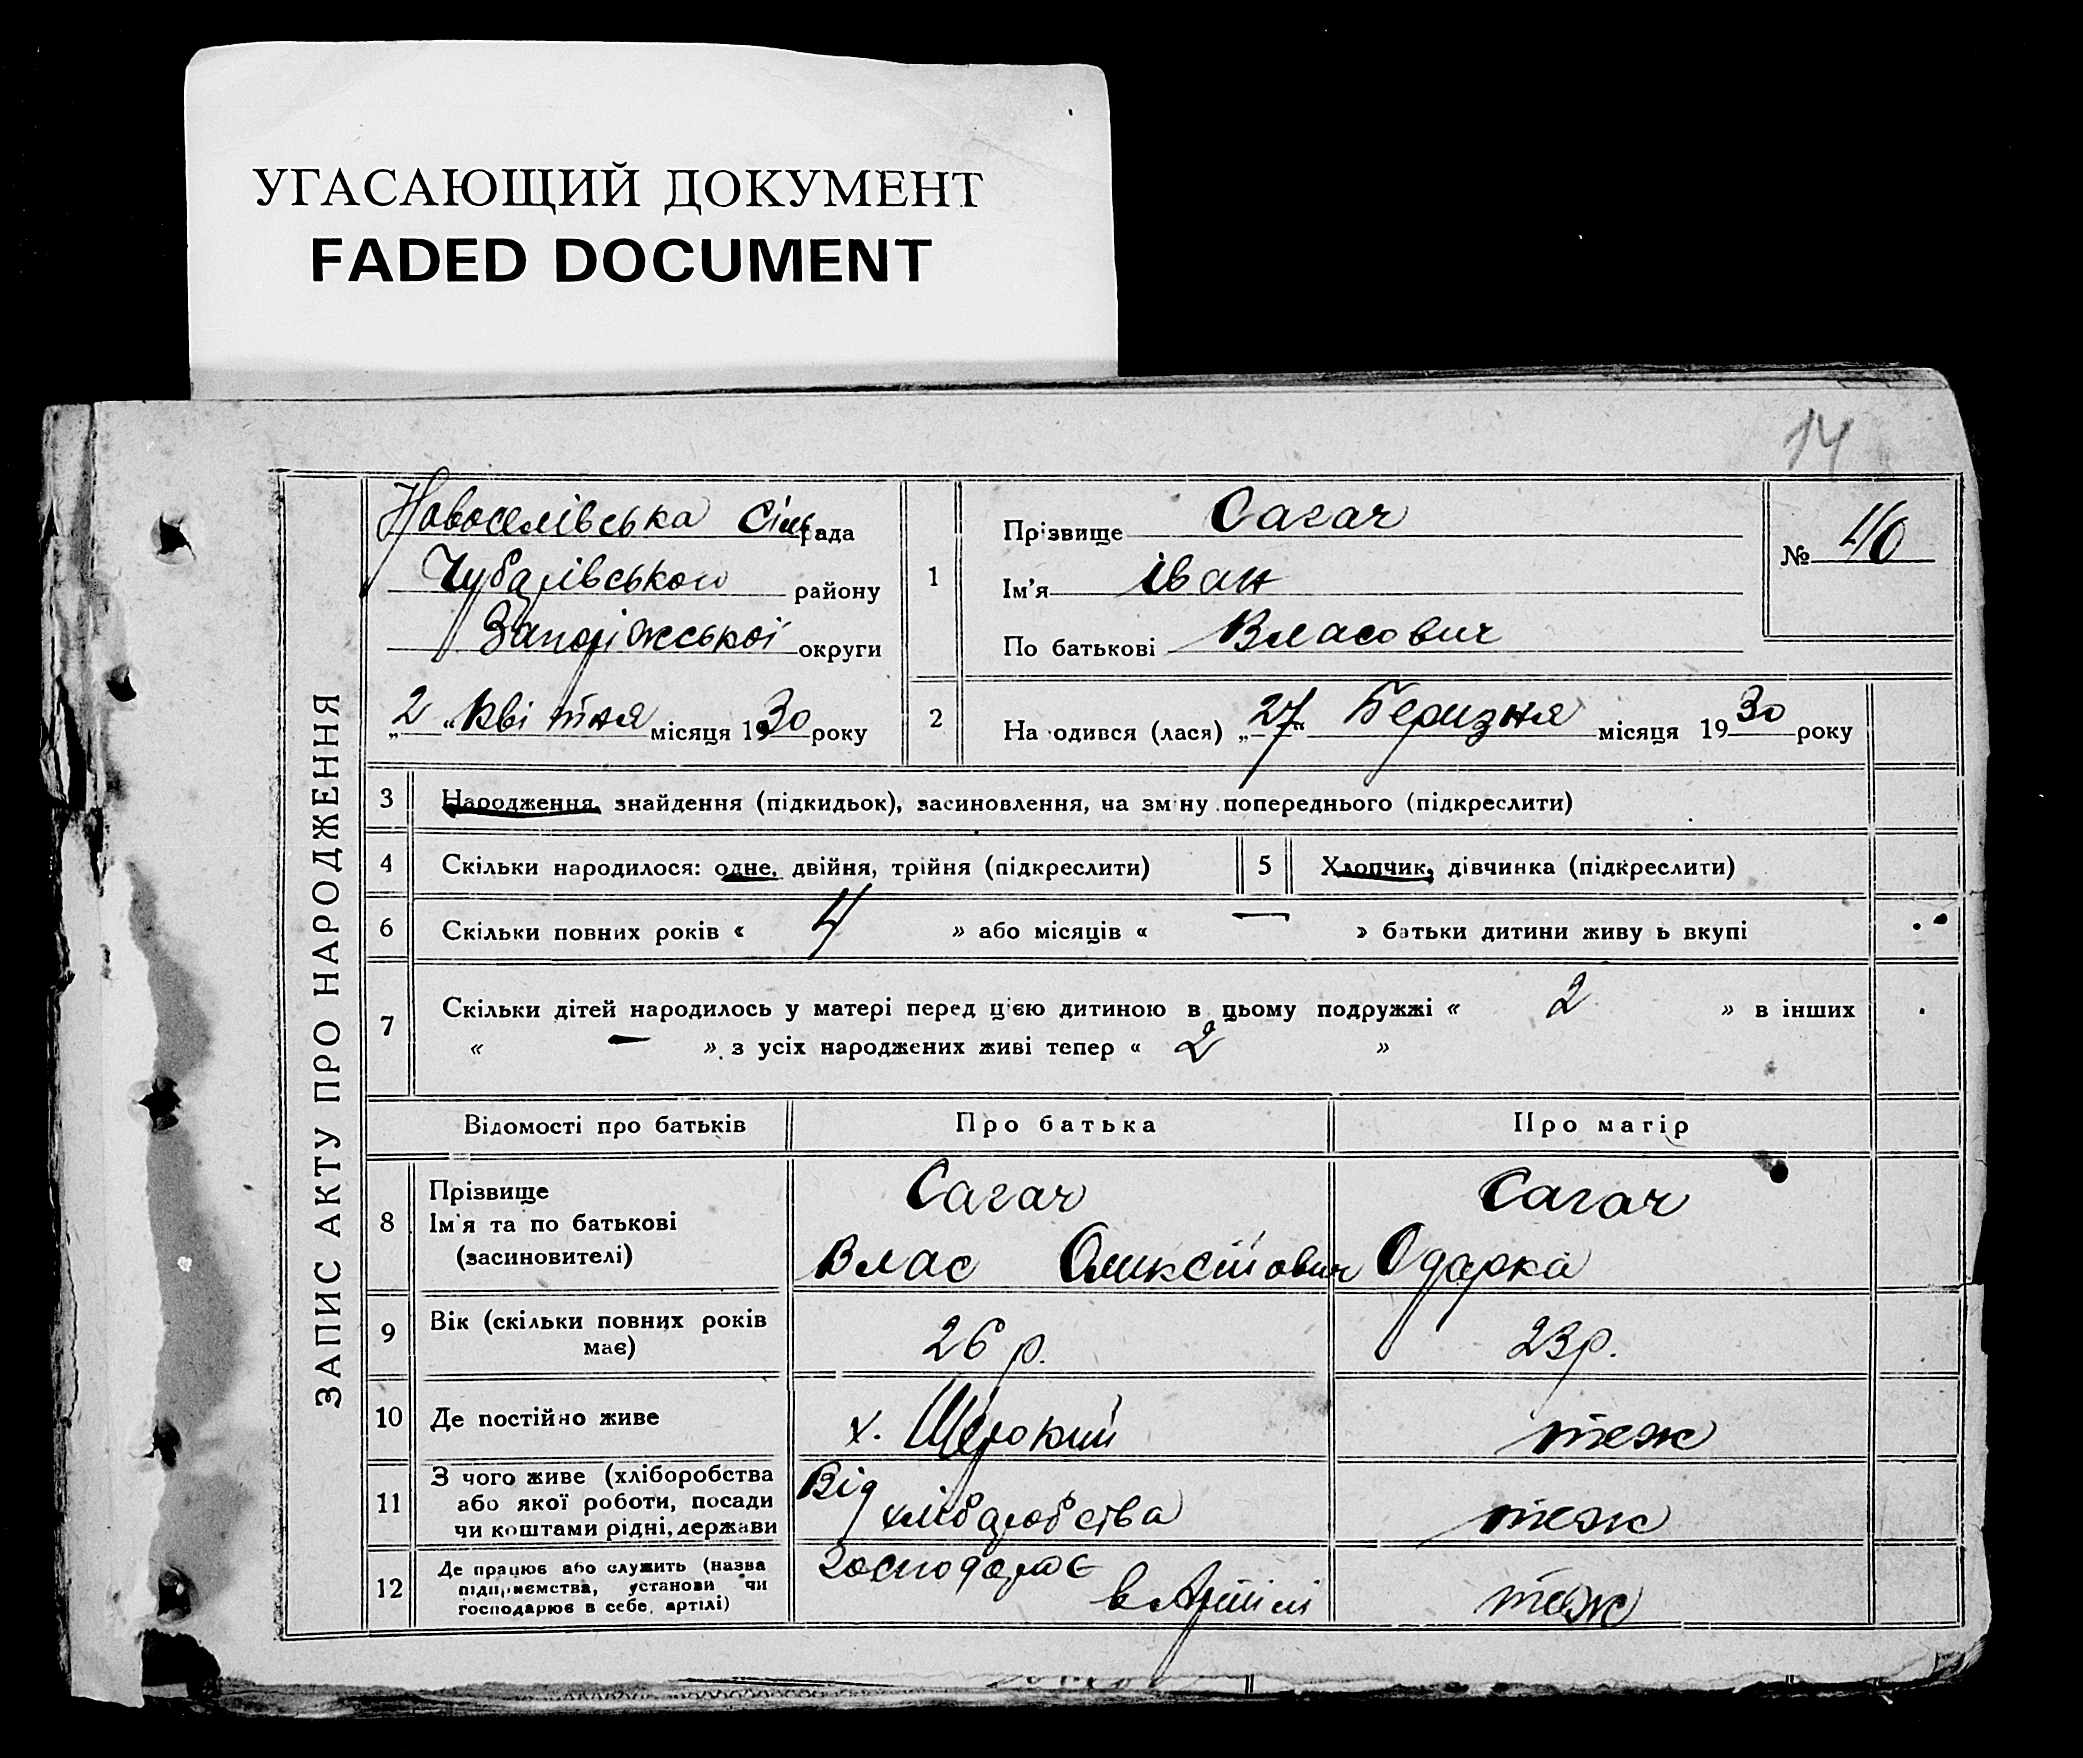 УГАСАЮЩИЙ ДОКУМЕНТ
FADED DOCUMENT
14
ЗАПИС АКТУ ПРО НАРОДЖЕННЯ
Новоселівська Сільрада
Чубарівського району
Запоріжської округи
„2“ квітня місяця 1930 року
1
Прізвище Сагач
Ім'я Іван
По батькові Власович
№ 40
2
На одився (лася) „27“ Березня місяця 1930 року
3 Народження, знайдення (підкидьок), засиновлення, на зміну попереднього (підкреслити)
4 Скільки народилося: одне, двійня, трійня (підкреслити)
5 Хлопчик, дівчинка (підкреслити)
6 Скільки повних років « 4 » або місяців « — » батьки дитини живу ь вкупі
7 Скільки дітей народилось у матері перед цією дитиною в цьому подружжі « 2 » в інших
« — » з усіх народжених живі тепер « 2 »
Відомості про батьків Про батька Про матір
8 Прізвище
Ім'я та по батькові
(засиновителі)
Сагач
Влас
Сагач
Одарка
9 Вік (скільки повних років
має)
26 р.
23 р.
10 Де постійно живе
х. Широкий
теж
11 З чого живе (хліборобства
або якої роботи, посади
чи коштами рідні, держави
Від
хліборобства
теж
12 Де працює або служить (назва
підприємства, установи чи
господарює в себе, артілі)
господарює
в Артілі
теж